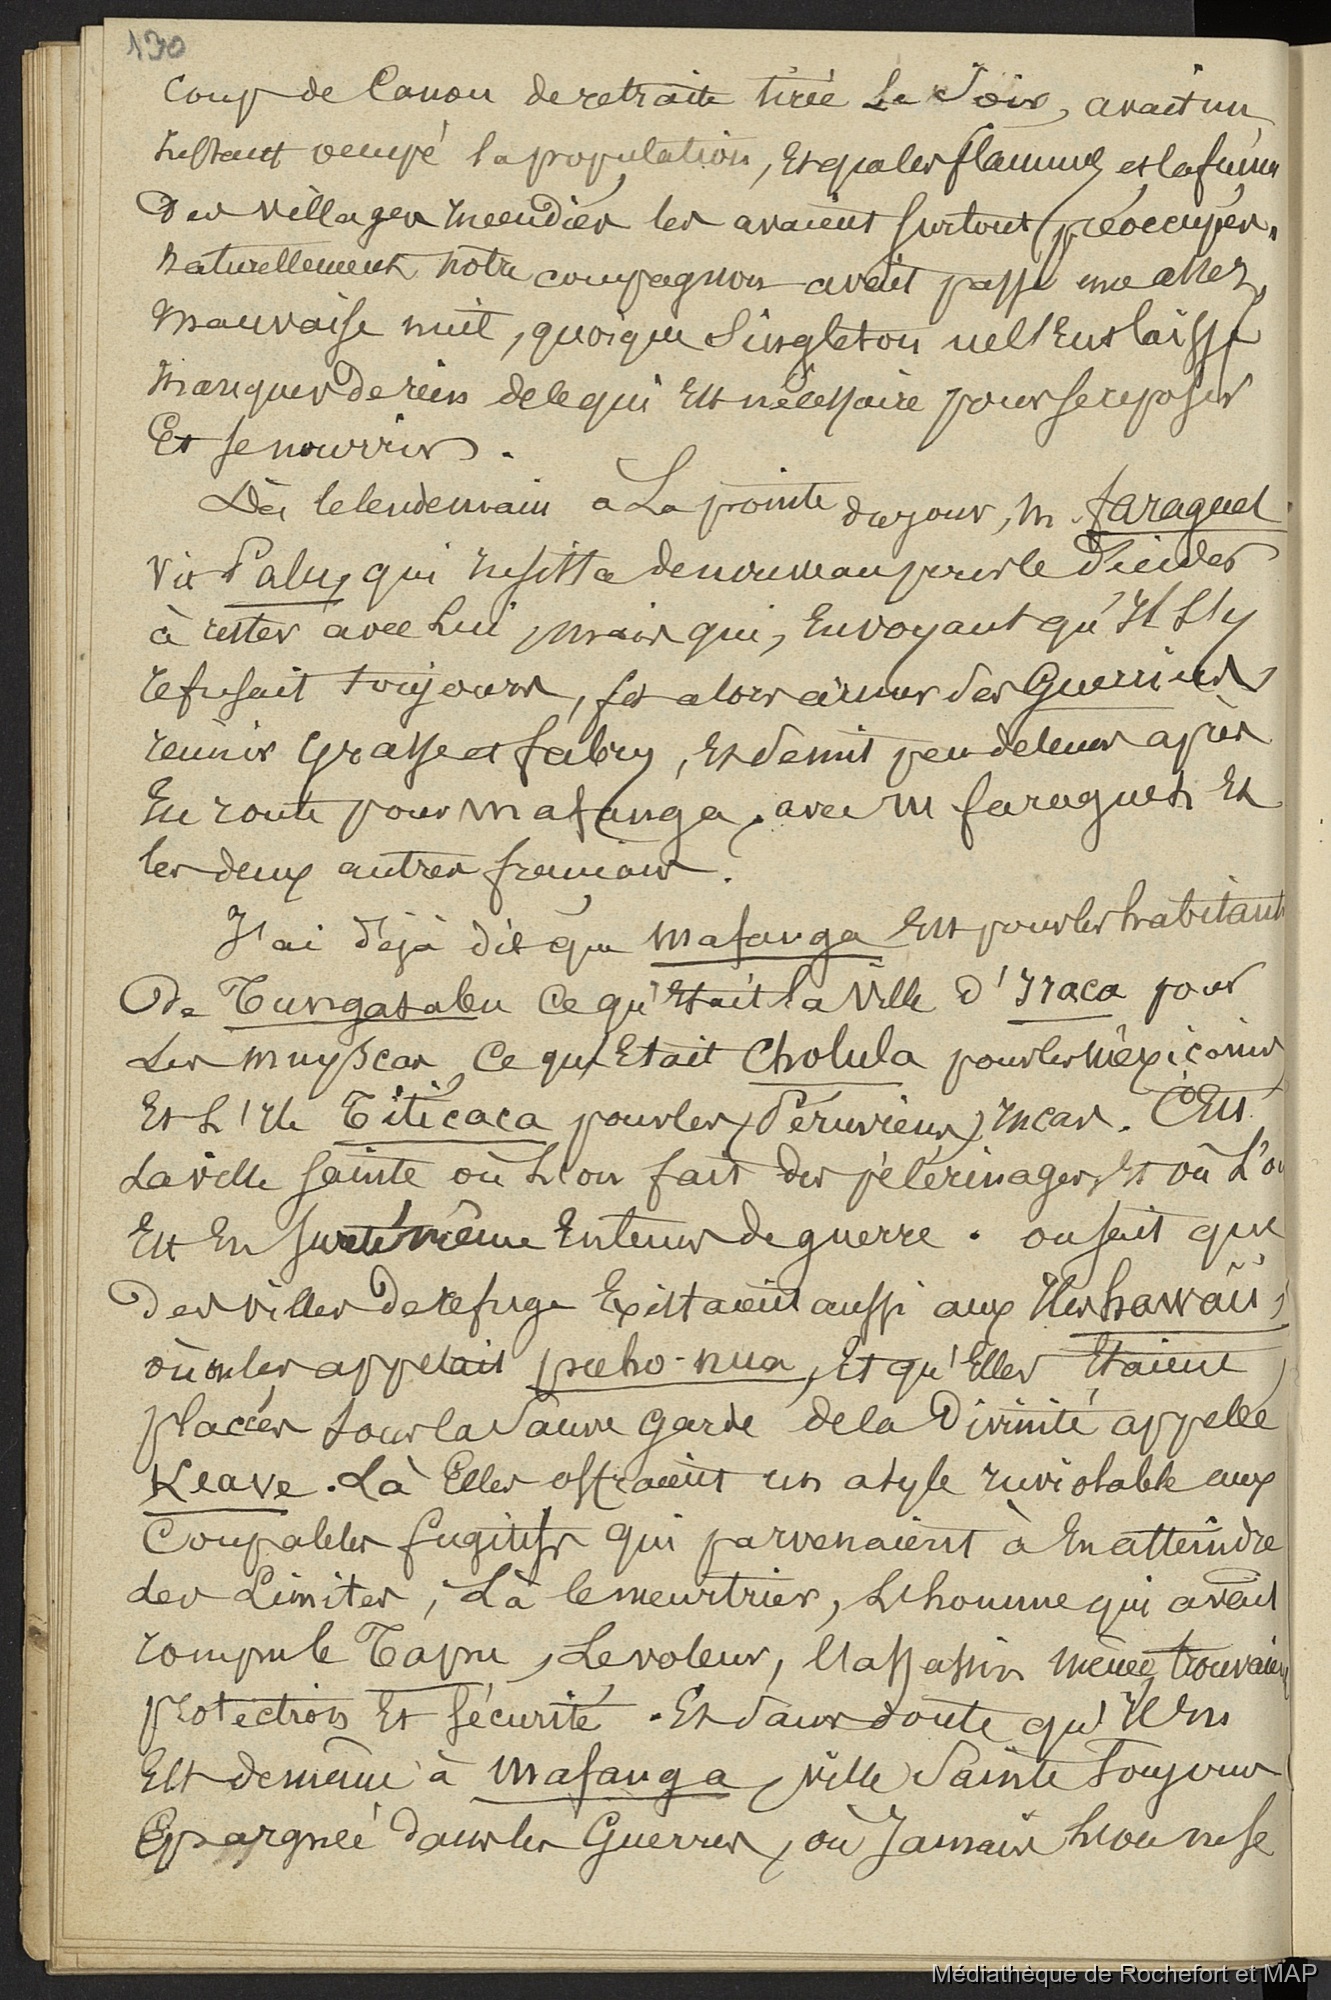 130
Coup de Canon de retraite tirée Le Soir, avait un
Instant occupé la population, Et que les flammes et la fumée
Des villages Incendiés les avaient surtout préoccupés.
Naturellement notre compagnon avait passé une assez
mauvaise nuit, quoique Singleton ne l'Eut laissé
manquer De rien de ce qui Est nécessaire pour se reposer
Et se nourrir.
Dès le lendemain à La pointe du jour, M. faraguet
vit Palu, qui Insista de nouveau pour le Décider
à rester avec Lui, mais qui, En voyant qu'Il s'y
refusait toujours, fit alors armer des Guerriers,
réunir Grasse et fabry, Et se mit peu de tems après
En route pour mafanga, avec M faraguet Et
les deux autres français.
J'ai déjà dit que mafanga Est pour les habitants
De Tungatabu Ce qu'Etait la Ville d'Iraca pour
Les muyscas, Ce qu'Etait Cholula pour les mexicains
Et L'Ile Titicaca pour les Péruviens Incas. C'Est
La ville sainte où L'on fait des pélérinages, Et où L'on
Est En sureté même En tems de guerre. on sait que
Des villes De refuge Existaient aussi aux Iles hawaii,
où on les appelait pueho-nua, Et qu'Elles Etaient
placées sous la Sauve Garde de la Divinité appelée
Keave. Là Elles offraient un asyle Inviolable aux
Coupables fugitifs qui parvenaient à En atteindre
Les Limites; Là le meurtrier, L'homme qui avait
rompu le Tapu, Le voleur, l'assassin même, trouvaient
protection Et sécurité. Et sans doute qu'Il En
Est de même à Mafanga, ville Sainte toujours
Epargnée dans les Guerres, où Jamais L'on ne se
Médiathèque de Rochefort et MAP